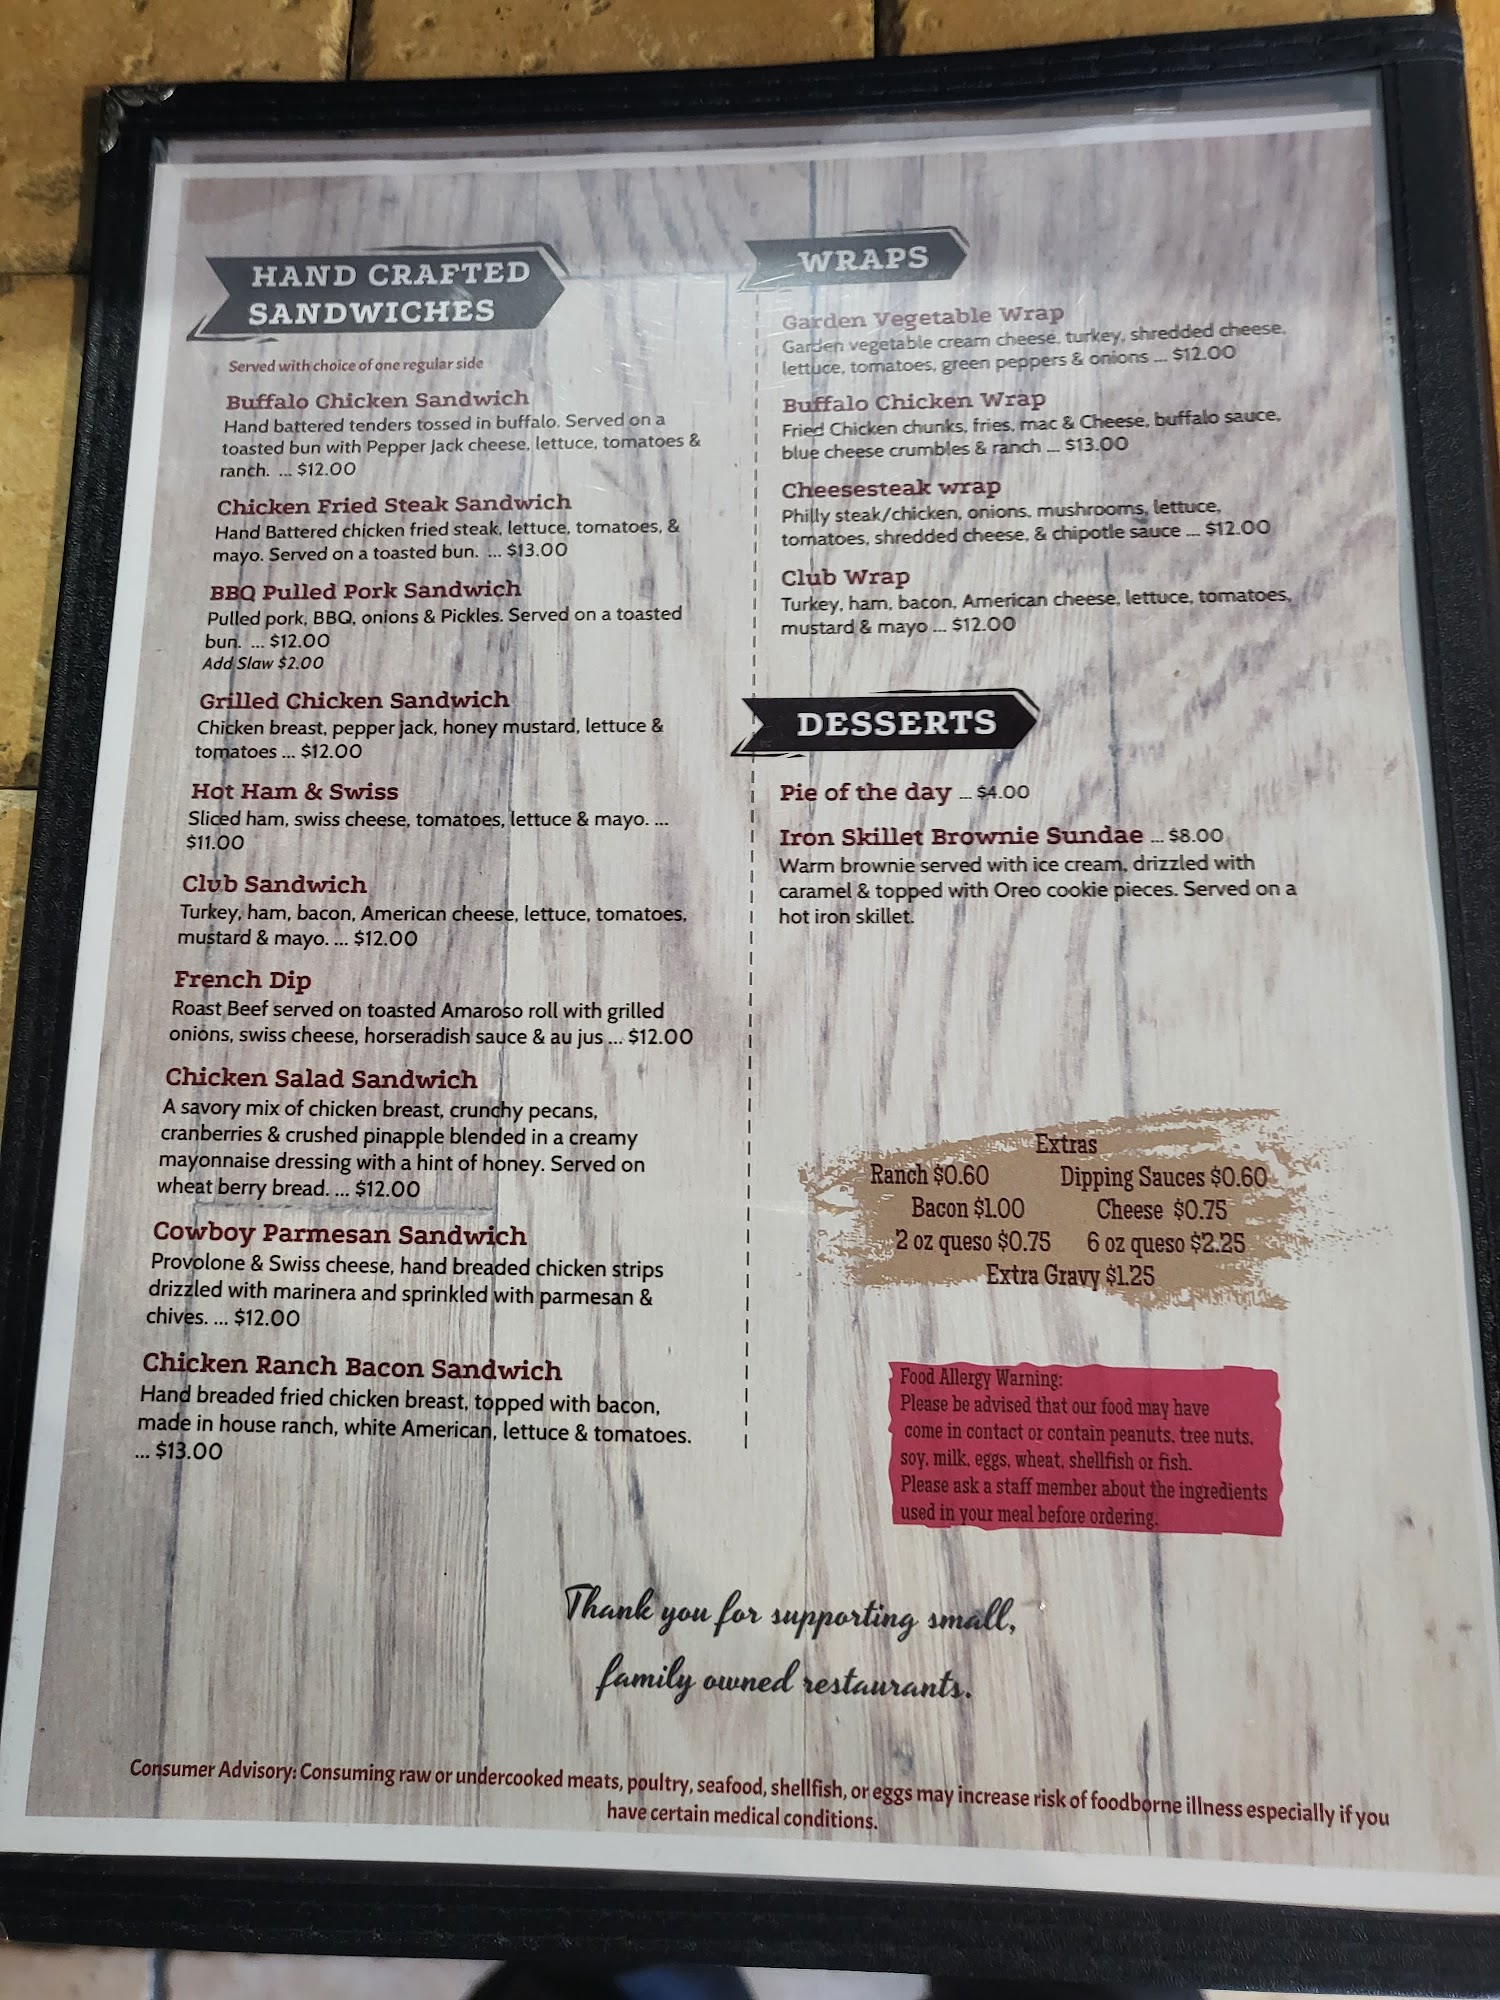 HAND CRAFTED
SANDWICHES
Served with choice of one regular side
Buffalo Chicken Sandwich
Hand battered tenders tossed in buffalo. Served on a
toasted bun with Pepper Jack cheese, lettuce, tomatoes &
ranch. ... $12.00
Chicken Fried Steak Sandwich
Hand Battered chicken fried steak, lettuce, tomatoes, &
mayo. Served on a toasted bun. ... $13.00
BBQ Pulled Pork Sandwich
Pulled pork, BBQ, onions & Pickles. Served on a toasted
bun. ... $12.00
Add Slaw $2.00
Grilled Chicken Sandwich
Chicken breast, pepper jack, honey mustard, lettuce &
tomatoes ... $12.00
Hot Ham & Swiss
Sliced ham, swiss cheese, tomatoes, lettuce & mayo. ...
$11.00
Club Sandwich
Turkey, ham, bacon, American cheese, lettuce, tomatoes,
mustard & mayo. ... $12.00
French Dip
Roast Beef served on toasted Amaroso roll with grilled
onions, swiss cheese, horseradish sauce & au jus ... $12.00
Chicken Salad Sandwich
A savory mix of chicken breast, crunchy pecans,
cranberries & crushed pinapple blended in a creamy
mayonnaise dressing with a hint of honey. Served on
wheat berry bread. ... $12.00
Cowboy Parmesan Sandwich
Provolone & Swiss cheese, hand breaded chicken strips
drizzled with marinera and sprinkled with parmesan &
chives. ... $12.00
Chicken Ranch Bacon Sandwich
Hand breaded fried chicken breast, topped with bacon,
made in house ranch, white American, lettuce & tomatoes.
... $13.00
WRAPS
Garden Vegetable Wrap
Garden vegetable cream cheese, turkey, shredded cheese,
lettuce, tomatoes, green peppers & onions ... $12.00
Buffalo Chicken Wrap
Fried Chicken chunks, fries, mac & Cheese, buffalo sauce,
blue cheese crumbles & ranch ... $13.00
Cheesesteak wrap
Philly steak/chicken, onions, mushrooms, lettuce,
tomatoes, shredded cheese, & chipotle sauce ... $12.00
Club Wrap
Turkey, ham, bacon, American cheese, lettuce, tomatoes,
mustard & mayo ... $12.00
DESSERTS
Pie of the day ... $4.00
Iron Skillet Brownie Sundae ... $8.00
Warm brownie served with ice cream, drizzled with
caramel & topped with Oreo cookie pieces. Served on a
hot iron skillet.
Extras
Ranch $0.60 Dipping Sauces $0.60
Bacon $1.00 Cheese $0.75
2 oz queso $0.75 6 oz queso $2.25
Extra Gravy $1.25
Food Allergy Warning:
Please be advised that our food may have
come in contact or contain peanuts, tree nuts,
soy, milk, eggs, wheat, shellfish or fish.
Please ask a staff member about the ingredients
used in your meal before ordering.
Thank you for supporting small,
family owned restaurants.
Consumer Advisory: Consuming raw or undercooked meats, poultry, seafood, shellfish, or eggs may increase risk of foodborne illness especially if you
have certain medical conditions.